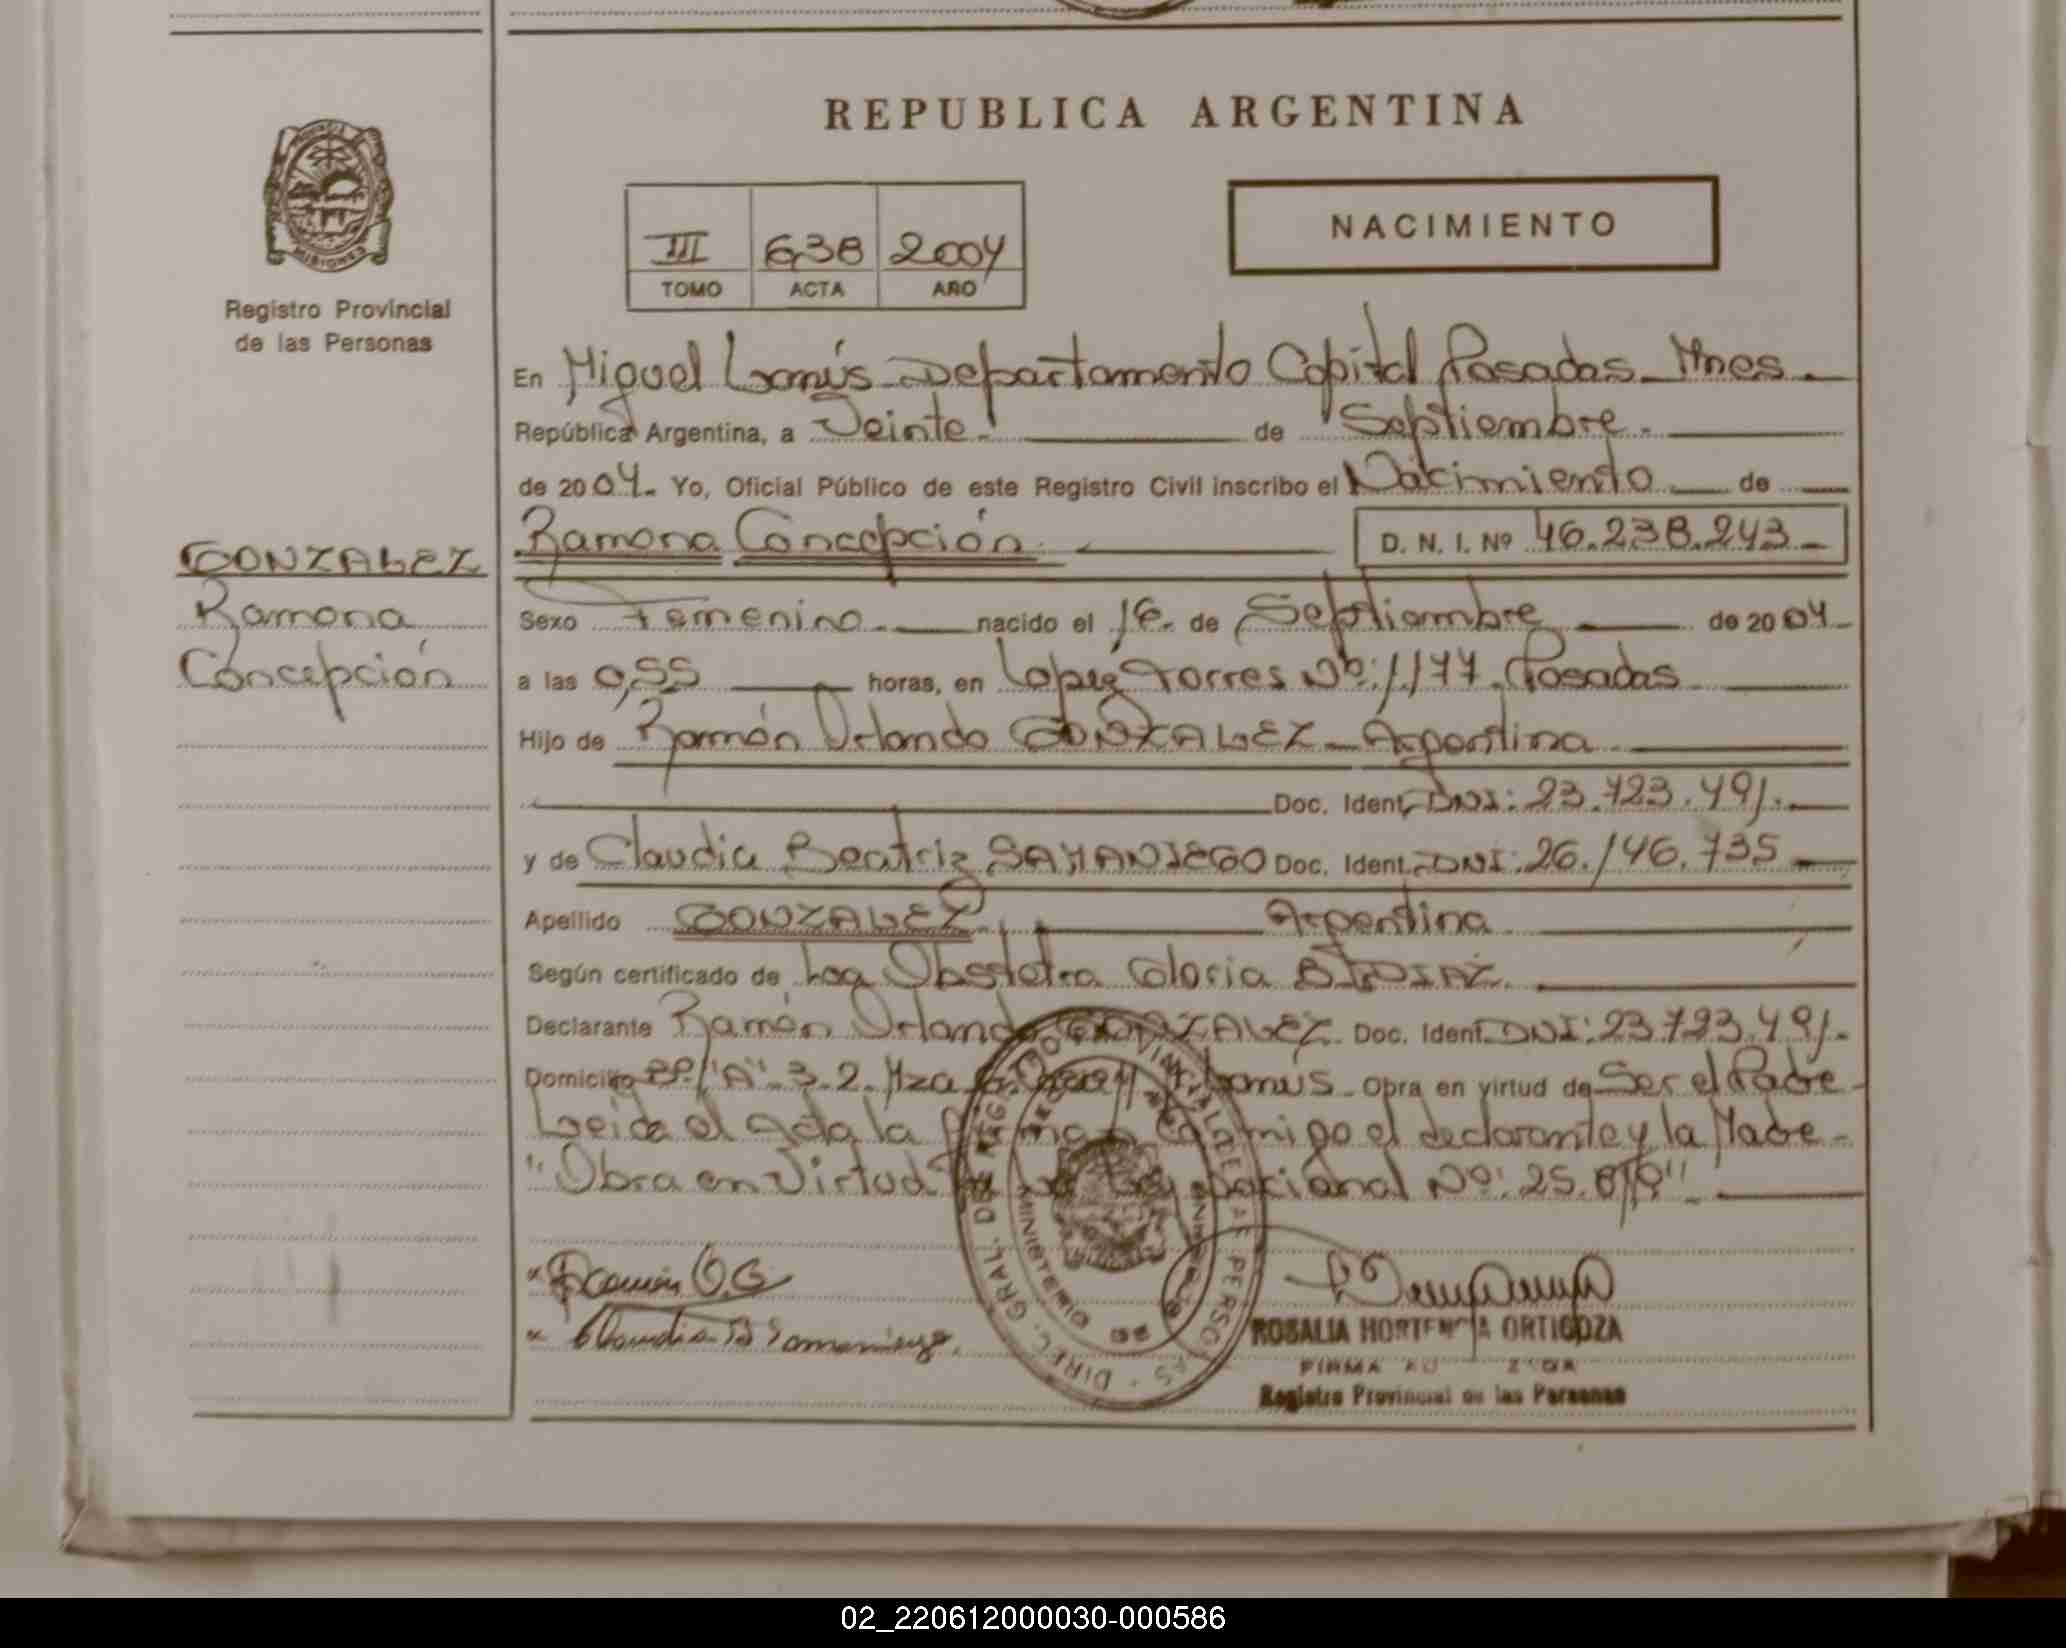 REPUBLICA ARGENTINA
NACIMIENTO
III 638 2004
TOMO ACTA AÑO
MISIONES
Registro Provincial
de las Personas
En Miguel Lanús - Departamento Capital Posadas - Mnes.
República Argentina, a Veinte. de Septiembre.
de 2004. Yo, Oficial Público de este Registro Civil inscribo el Nacimiento de
Ramona Concepción. D. N. I. Nº 46.238.243
GONZALEZ
Ramona
Concepción
Sexo Femenino. nacido el 16. de Septiembre de 2004
a las 0,55 horas, en Lopez Torres Nº: 1.177. Posadas
Hijo de Ramón Orlando GONZALEZ - Argentina
Doc. Ident. DNI: 23.723.491.
y de Claudia Beatriz SAMANIEGO Doc. Ident. DNI: 26.146.735
Apellido GONZALEZ. Argentina
Según certificado de Obstetra Gloria
Declarante Ramón Orlando GONZALEZ. Doc. Ident. DNI: 23.723.491.
Domicilio Bº/"A" 3-2. Mza Lanús - Obra en virtud de Ser el Padre
Leida el acta la conmigo el declarante y la Madre
"Obra en Virtud Nacional Nº: 25.819"
Ramón O.G
Claudia B Samaniego.
DIREC. GRAL. DE REGISTRO PROVINCIAL DE LAS PERSONAS
MINISTERIO DE
ROSALIA HORTENCIA ORTIGOZA
FIRMA AUTORIZADA
Registro Provincial de las Personas
02_220612000030-000586